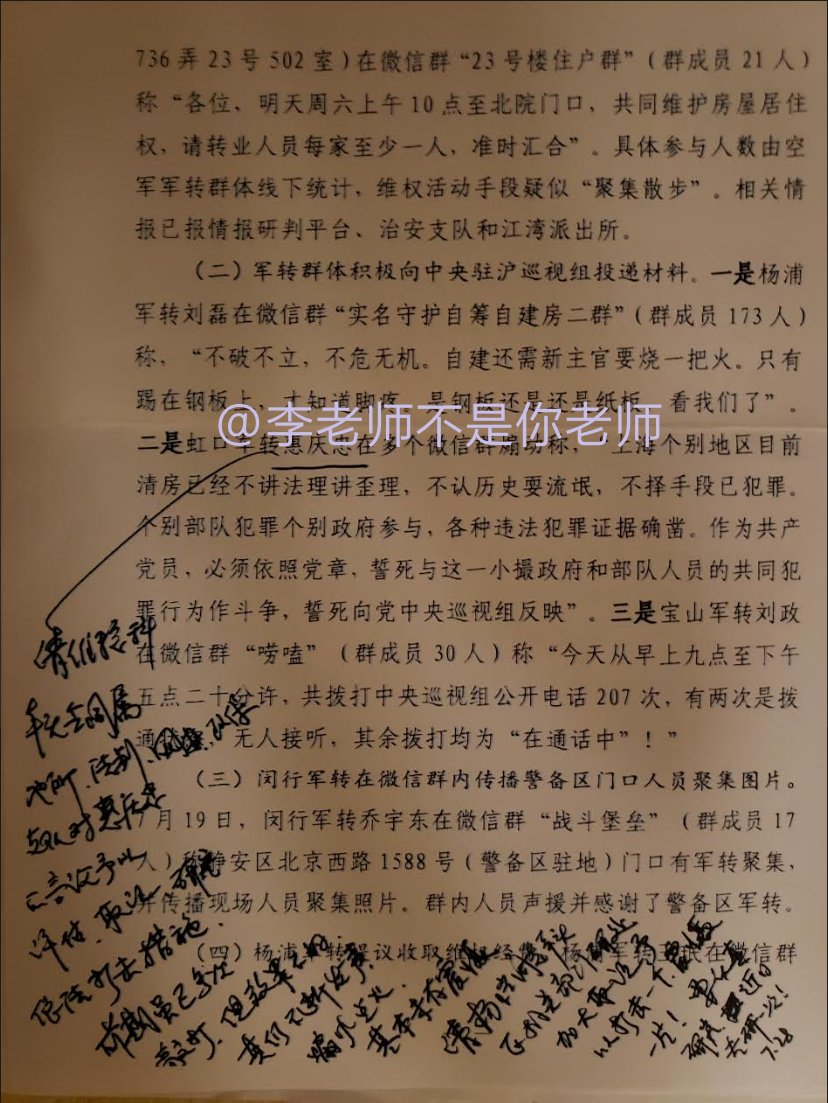 736弄23号502室)在微信群“23号楼住户群”(群成员21人)
称“各位,明天周六上午10点至北院门口,共同维护房屋居住
权,请转业人员每家至少一人,准时汇合”。具体参与人数由空
军军转群体线下统计,维权活动手段疑似“聚集散步”。相关情
报已报情报研判平台、治安支队和江湾派出所。
(二)军转群体积极向中央驻沪巡视组投递材料。一是杨浦
军转刘磊在微信群“实名守护自筹自建房二群”(群成员173人)
称,“不破不立,不危无机。自建还需新主官要烧一把火。只有
踢在钢板上,才知道脚疼,是钢板还是还是纸板,看我们了”。
@李老师不是你老师
二是虹口军转惠庆忠在多个微信群煽动称,“上海个别地区目前
清房已经不讲法理讲歪理,不认历史耍流氓,不择手段已犯罪。
个别部队犯罪个别政府参与,各种违法犯罪证据确凿。作为共产
党员,必须依照党章,誓死与这一小撮政府和部队人员的共同犯
罪行为作斗争,誓死向党中央巡视组反映”。三是宝山军转刘政
在微信群“唠嗑”(群成员30人)称“今天从早上九点至下午
五点二十分许,共拨打中央巡视组公开电话207次,有两次是拨
通 无人接听,其余拨打均为“在通话中”!”
(三)闵行军转在微信群内传播警备区门口人员聚集图片。
7月19日,闵行军转乔宇东在微信群“战斗堡垒”(群成员17
人)称静安区北京西路1588号(警备区驻地)门口有军转聚集,
并传播现场人员聚集照片。群内人员声援并感谢了警备区军转。
(四)杨浦军转提议收取维权经费。杨浦军转 在微信群
请维稳科
牵头会同属
地所、法制、
对惠庆忠
言论予以
评估、取证、研究
依法打击措施.
7.28